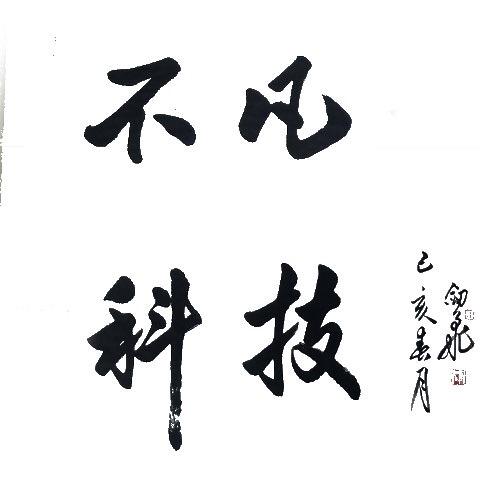 不凡
科技
己亥春月